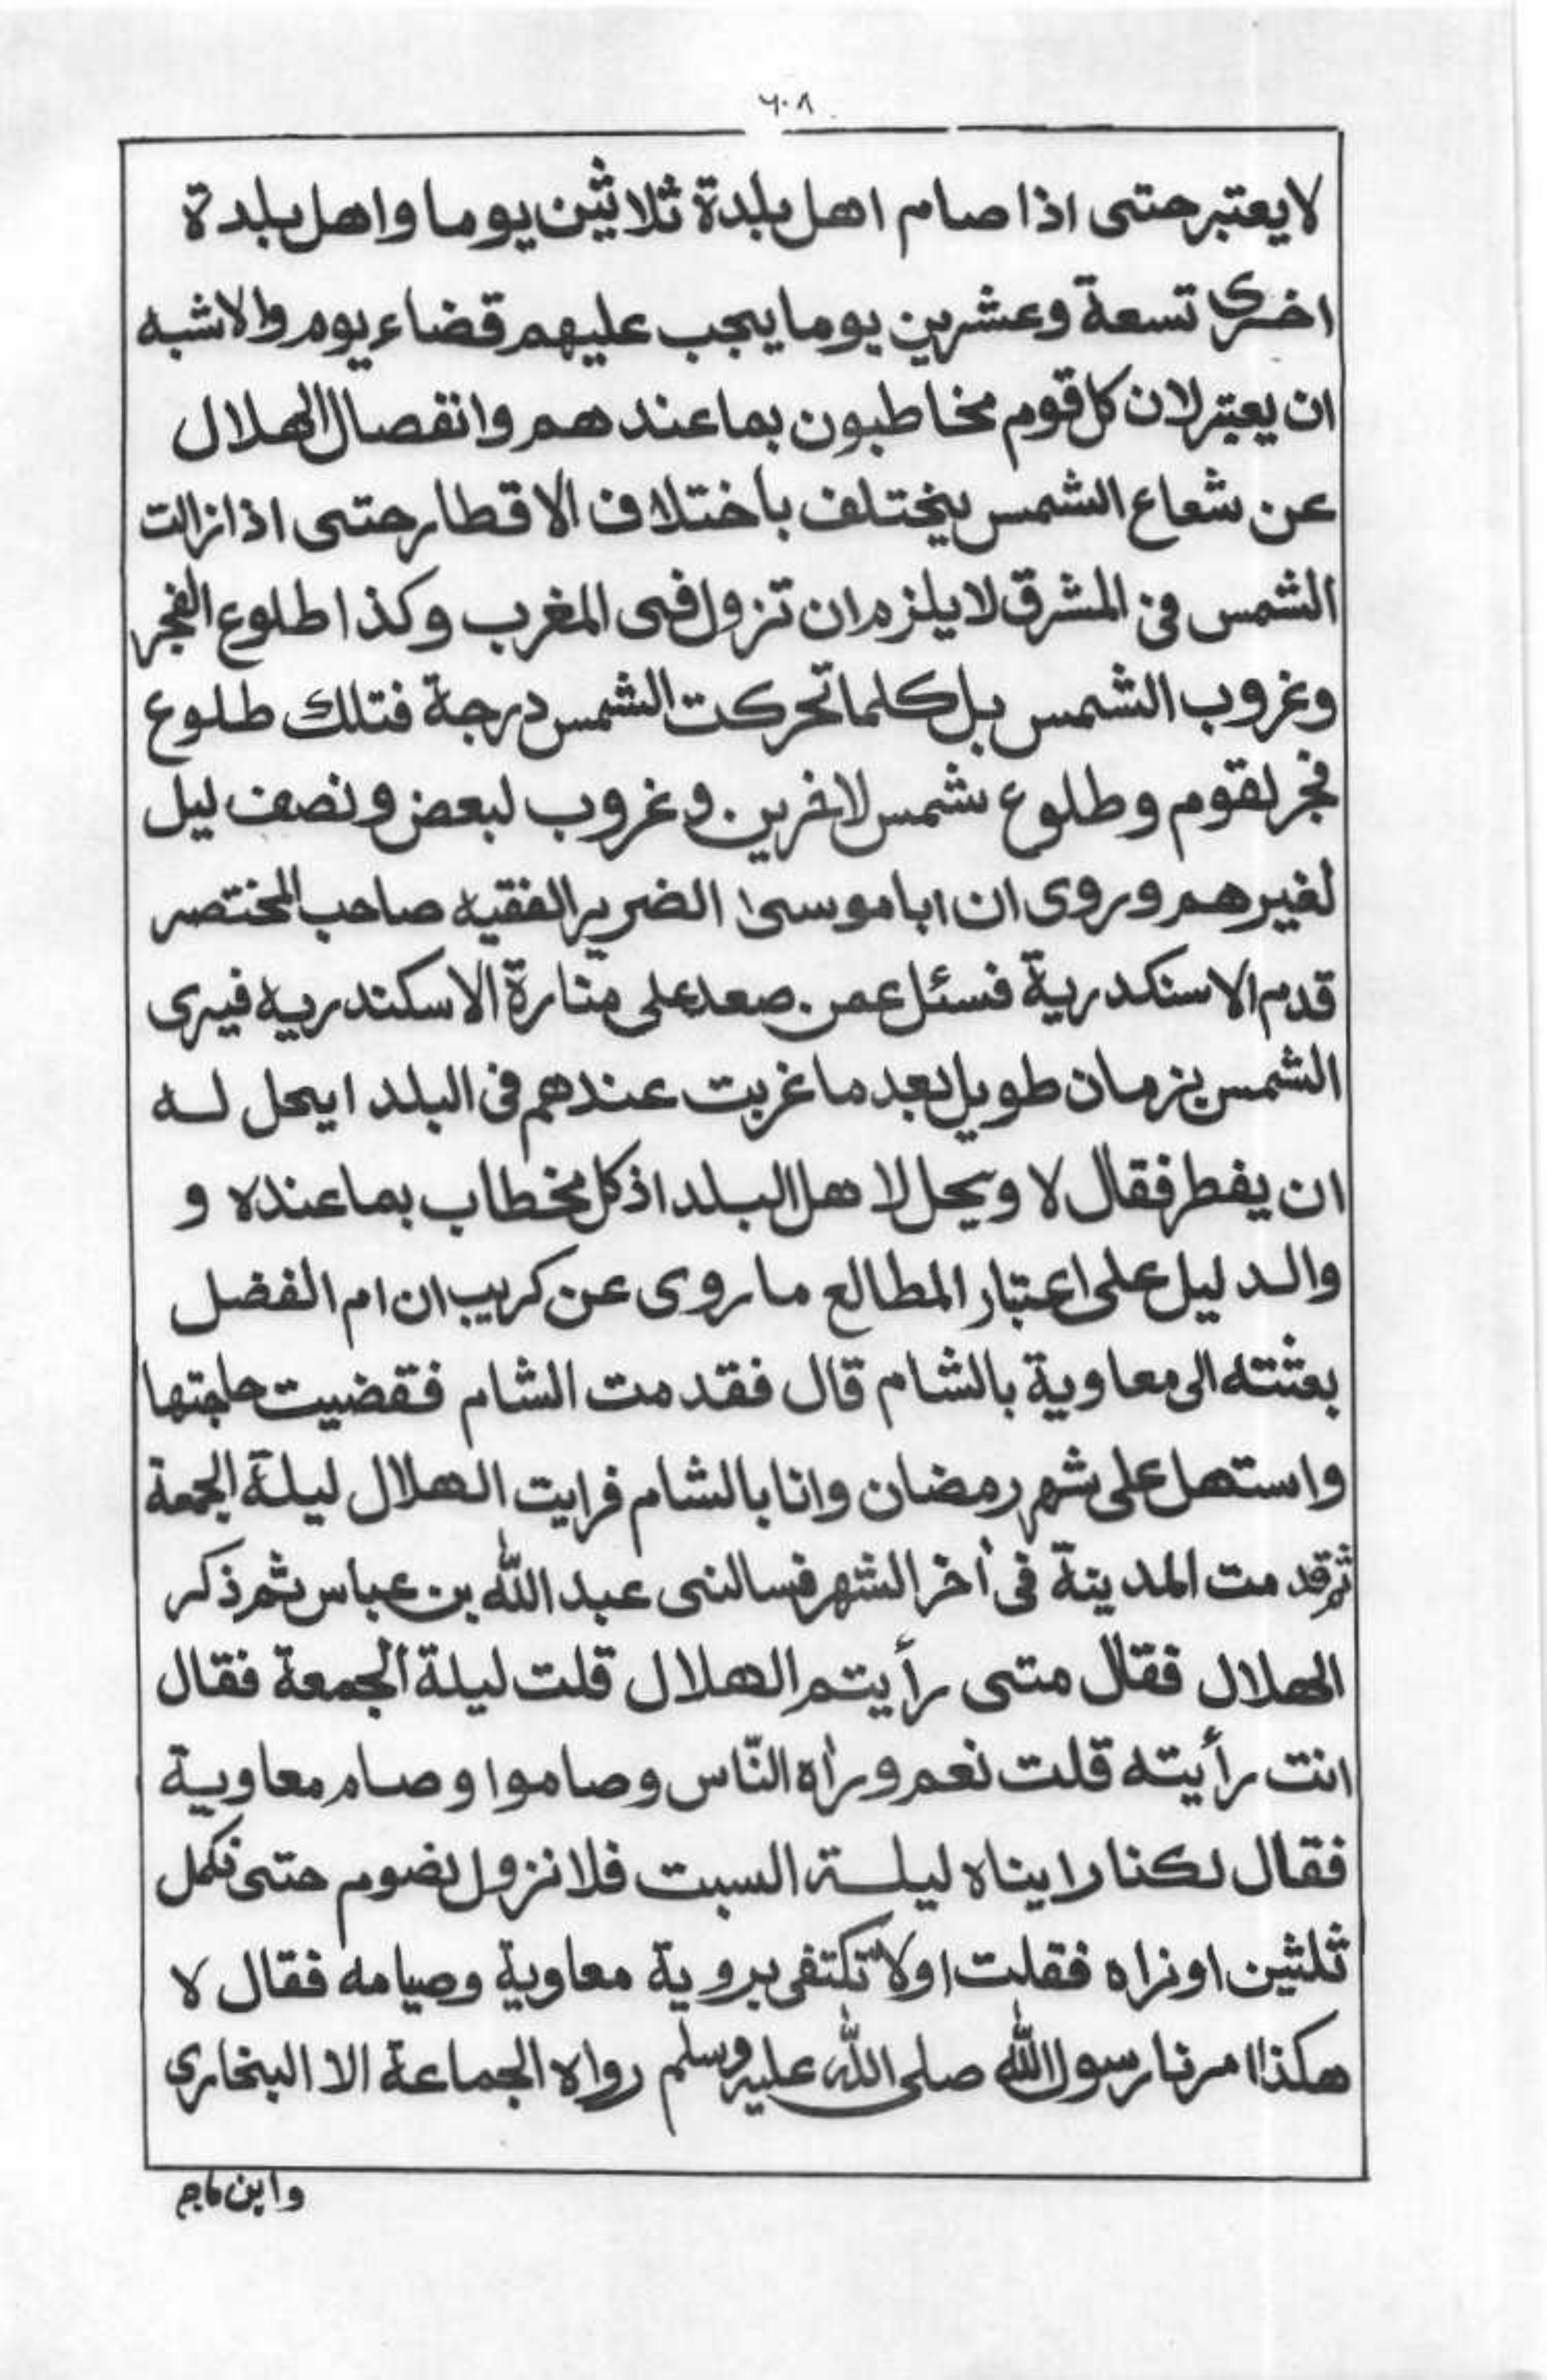 ٦٠٨
لا يعتبر حتى اذا صام اهل بلدة ثلاثين يوما واهل بلدة
اخرى تسعة وعشرين يوما يجب عليهم قضاء يوم والاشبه
ان يعتبر لان كل قوم مخاطبون بما عندهم وانفصال الهلال
عن شعاع الشمس يختلف باختلاف الاقطار حتى اذا زالت
الشمس في المشرق لا يلزم ان تزول فى المغرب وكذا طلوع الفجر
وغروب الشمس بل كلما تحركت الشمس درجة فتلك طلوع
فجر لقوم وطلوع شمس لاخرين. وغروب لبعض ونصف ليل
لغيرهم وروى ان ابا موسىٰ الضرير الفقيه صاحب المختصر
قدم الاسنكدرية فسئل عمن. صعد على منارة الاسكندريه فيرى
الشمس بزمان طويل بعد ما غربت عندهم فى البلد ايحل له
ان يفطر فقال لا ويحل لاهل البلد اذ كل مخطاب بما عنده و
والدليل على اعتبار المطالع ما روى عن كريب ان ام الفضل
بعثته الى معاوية بالشام قال فقدمت الشام فقضيت حاجتها
واستهل على شهر رمضان وانا بالشام فرايت الهلال ليلة الجمعة
ثم قدمت المدينة فى أخر الشهر فسالنى عبد الله بن عباس ثم ذكر
الهلال فقال متى رأيتم الهلال قلت ليلة الجمعة فقال
انت رأيته قلت نعم وراٰه النّاس وصاموا وصام معاوية
فقال لكنا رايناه ليلة السبت فلا نزول نضوم حتى نكمل
ثلثين او نراه فقلت اولا تكتفى بروية معاوية وصيامه فقال لا
هكذا امرنا رسول الله صلى الله عليه وسلم رواه الجماعة الا البخاري
وابن ماجه